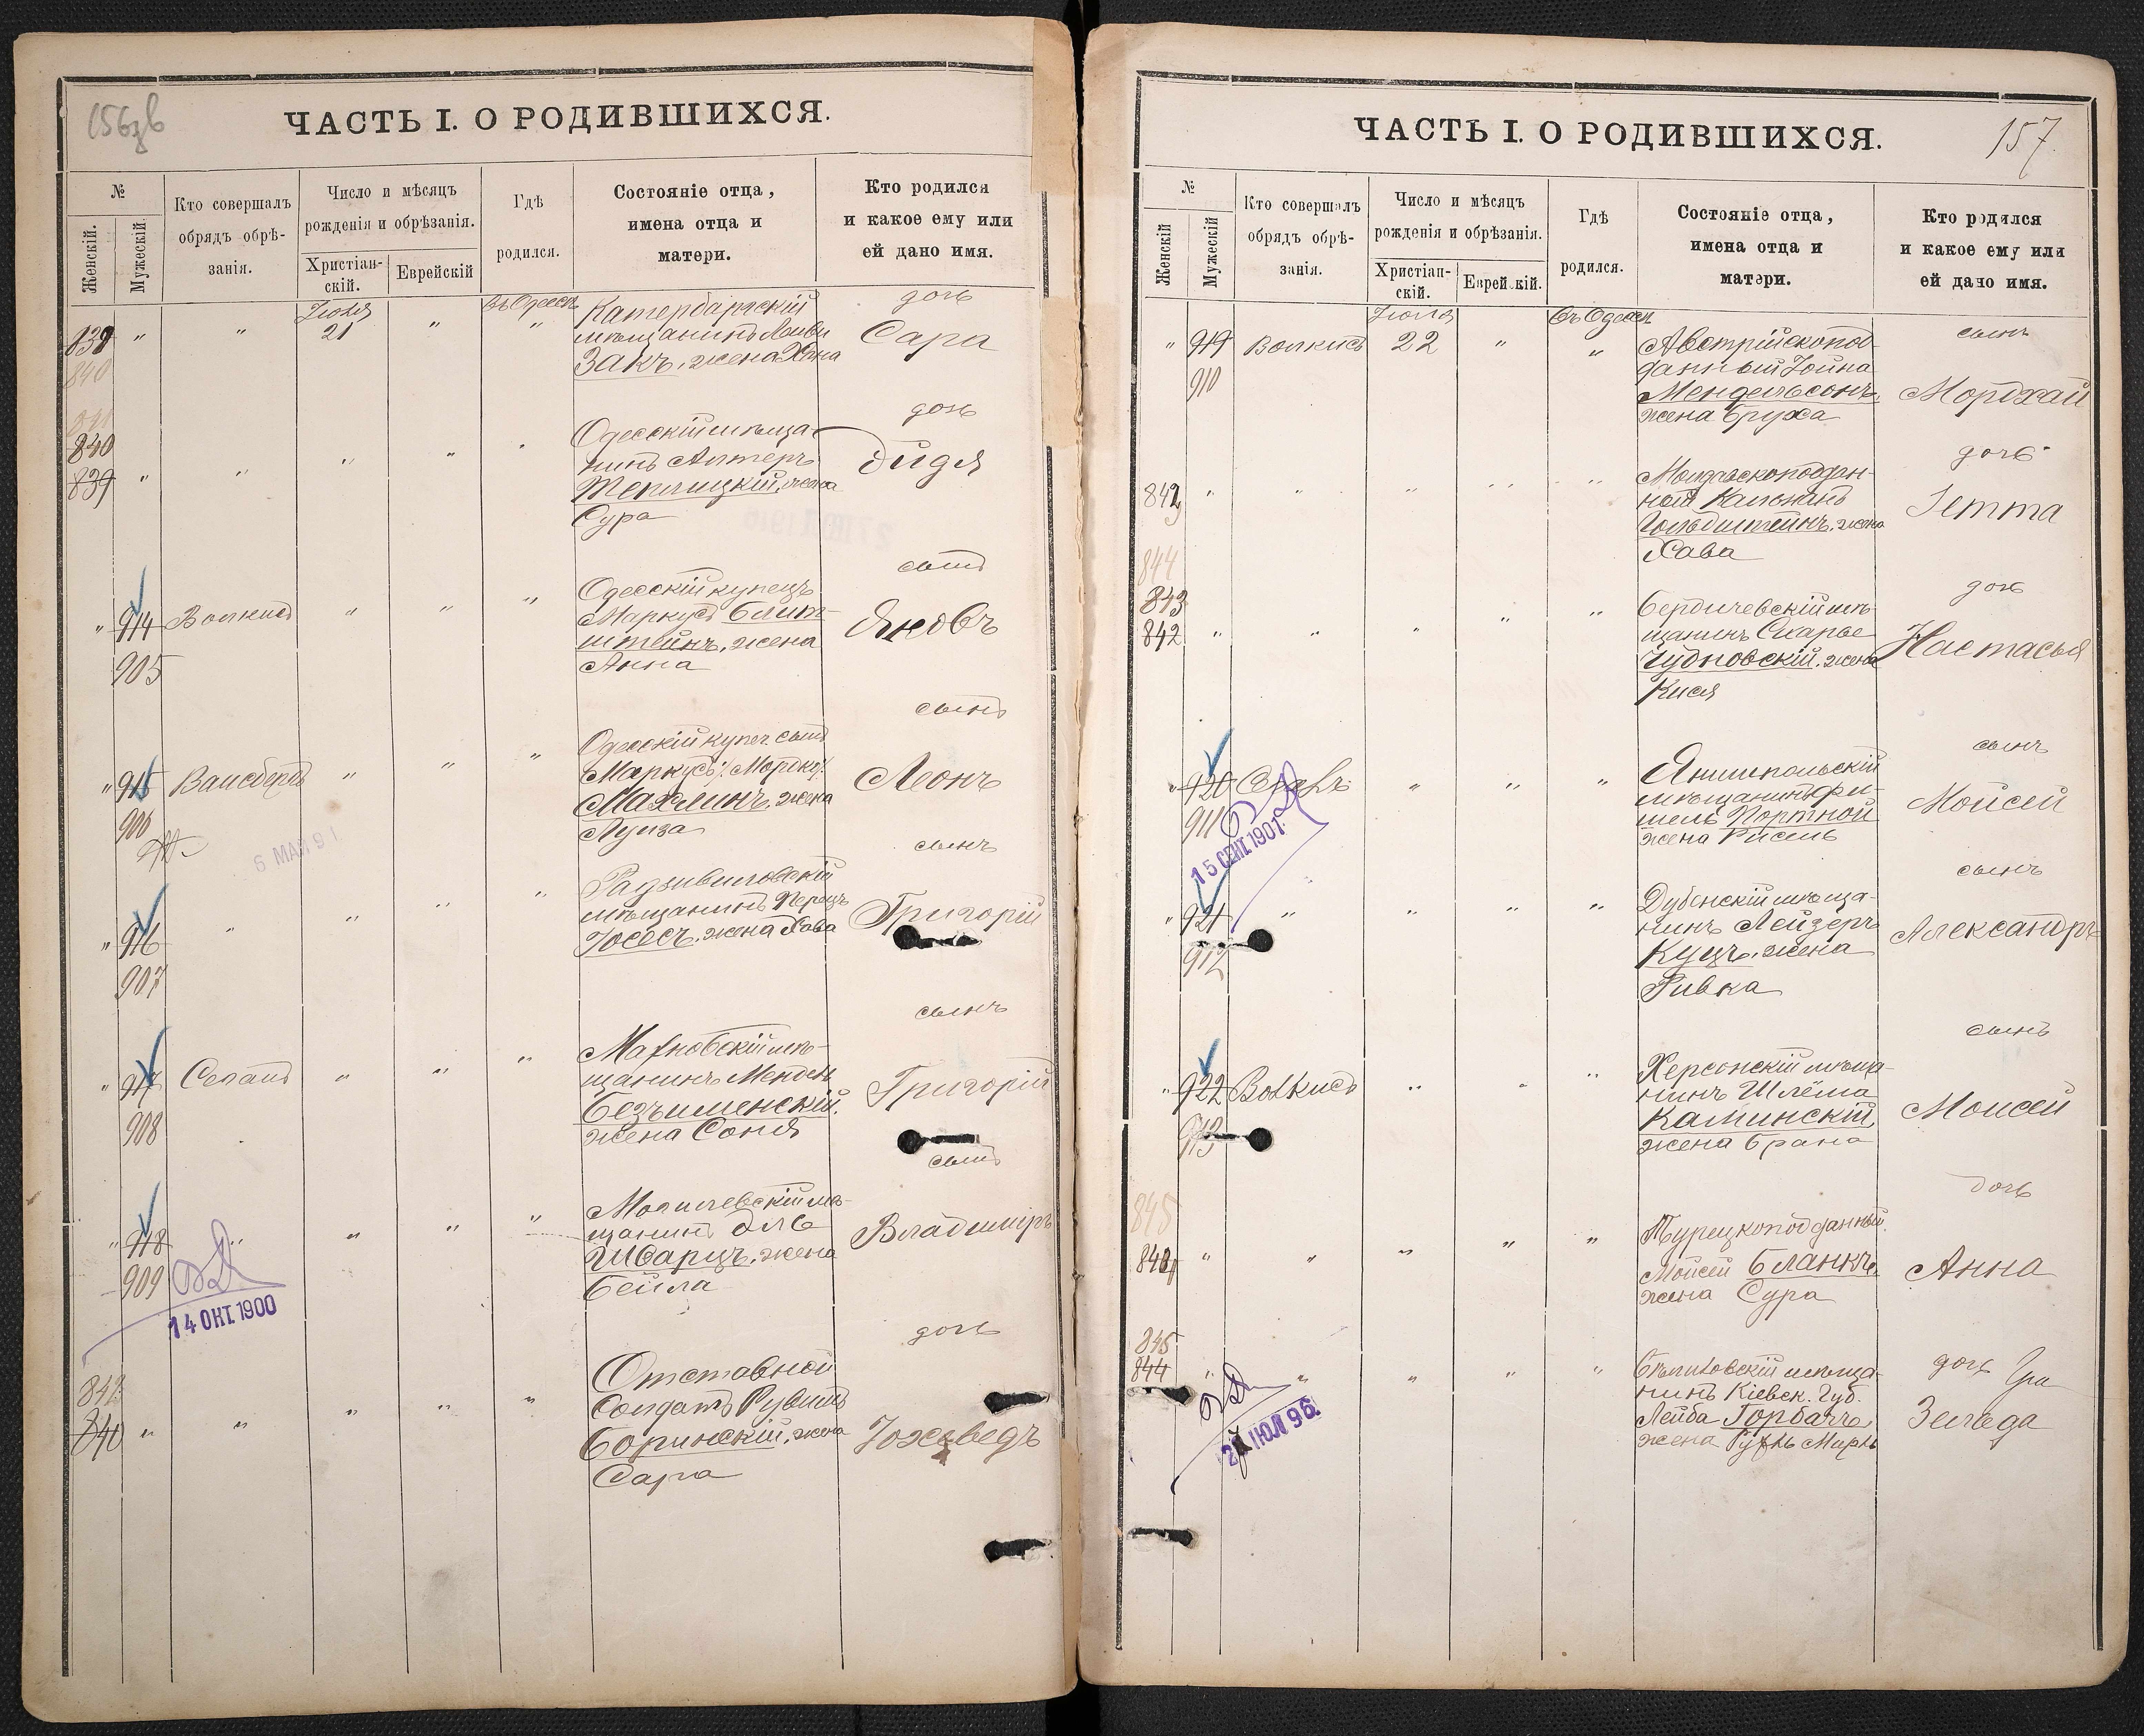 156
ЧАСТЬ I. О РОДИВШИХСЯ.
№
Женскій.
Мужескій
Кто совершалъ
обрядъ обрѣ-
занія.
Число и мѣсяцъ
рожденія и обрѣзанія.
Христіан-
скій.
Еврейскій
Гдѣ
родился.
Состояніе отца,
имена отца и
матери.
Кто родился
и какое ему или
ей дано имя.
839 " "
840
Іюля
21 "
въ Одессѣ
"
мѣщанинъ
Закъ, жена Хана
дочь
Сара
840
839 " " " "
Одесскій мѣща-
нинъ Алтеръ
Теплицкій, жена
Сура
дочь
Дидя
" 914 Волкисъ " " "
905
Одесскій купецъ
Маркусъ Блит-
штейнъ, жена
Анна
сынъ
Яковъ
" 915 Вайсбергъ " " "
906
6 МАЯ 91
Одесскій купеч. сынъ
Маркусъ (Мордку)
Махлинъ, жена
Луиза
сынъ
Леонъ
" 916 " " " "
907
Радзивиловскій
мѣщанинъ Перецъ
Іосесъ, жена Хава
сынъ
Григорій
" 917 Сегалъ " " "
908
Махновскій мѣ-
щанинъ Мендель
Безъименскій,
жена Соня
сынъ
Григорій
" 918 " " " "
909
14 ОКТ 1900
Могилевскій мѣ-
щанинъ
Шварцъ, жена
Бейла
сынъ
Владиміръ
842
840 " " " " "
Отставной
Солдатъ Рувинъ
Боринскій, жена
Сара
дочь
Іохеведъ
157.
ЧАСТЬ I. О РОДИВШИХСЯ.
№
Женскій
Мужескій
Кто совершалъ
обрядъ обрѣ-
занія.
Число и мѣсяцъ
рожденія и обрѣзанія.
Христіан-
скій.
Еврейскій.
Гдѣ
родился.
Состояніе отца,
имена отца и
матери.
Кто родился
и какое ему или
ей дано имя.
" 919 Волкисъ
910
Іюля
22 "
въ Одессѣ
"
Австрійскопод-
данный Іойна
Мендельсонъ,
жена Бруха
сынъ
Мордхай
842 " " " " "
Гольдштейнъ, жена
Хава
дочь
Іетта
844
843
842 " " " " "
Бердичевскій мѣ-
щанинъ
Чудновскій, жена
Кися
дочь
Настасья
" 920 " " "
911
15 СЕН 1901
Янушпольскій
мѣщанинъ Фи-
шель Портной
жена Рисель
сынъ
Мойсей
" 921 " " " "
912
Дубенскій мѣща-
нинъ Лейзеръ
Куцъ, жена
Ривка
сынъ
Александръ
" 922 Волкисъ " " "
913
Херсонскій мѣща-
нинъ Шлёма
Каминскій,
жена Брана
сынъ
Моисей
845
" " " " "
Турецкоподданный
Мойсей Бланкъ,
жена Сура
дочь
Анна
845
844 " " " " "
ИЮЛ 96
мѣща-
нинъ Кіевск. Губ.
Лейба Горбачъ,
жена
дочь
Зелода